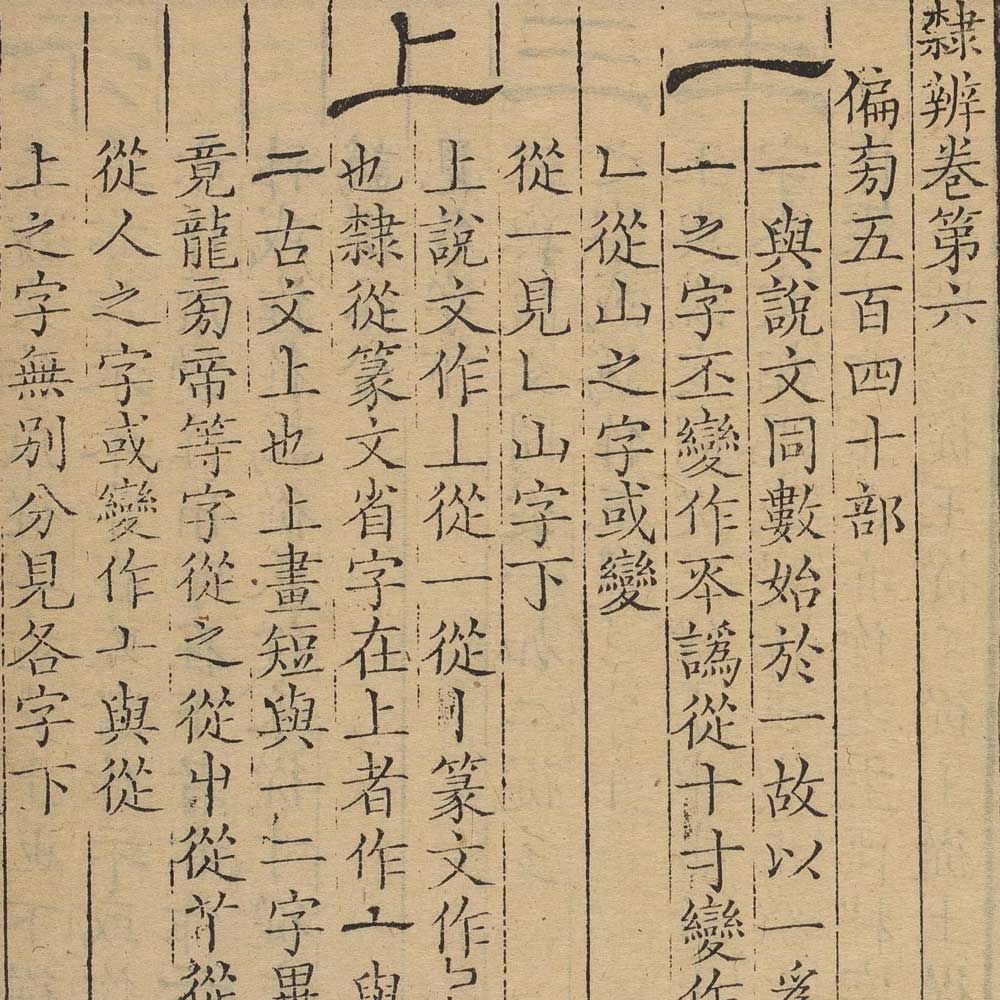 隸辨卷第六
偏旁五百四十部
一
一與說文同數始於一故以一爲
一之字丕變作㔻譌從十寸變作
乚從山之字或變
從一見乚山字下
上
上說文作丄從一從丨篆文作
也隸從篆文省字在上者作亠與
二古文上也上畫短與一二字
竟龍旁帝等字從之從屮從䒑從
從人之字或變作亠與從
上之字無别分見各字下